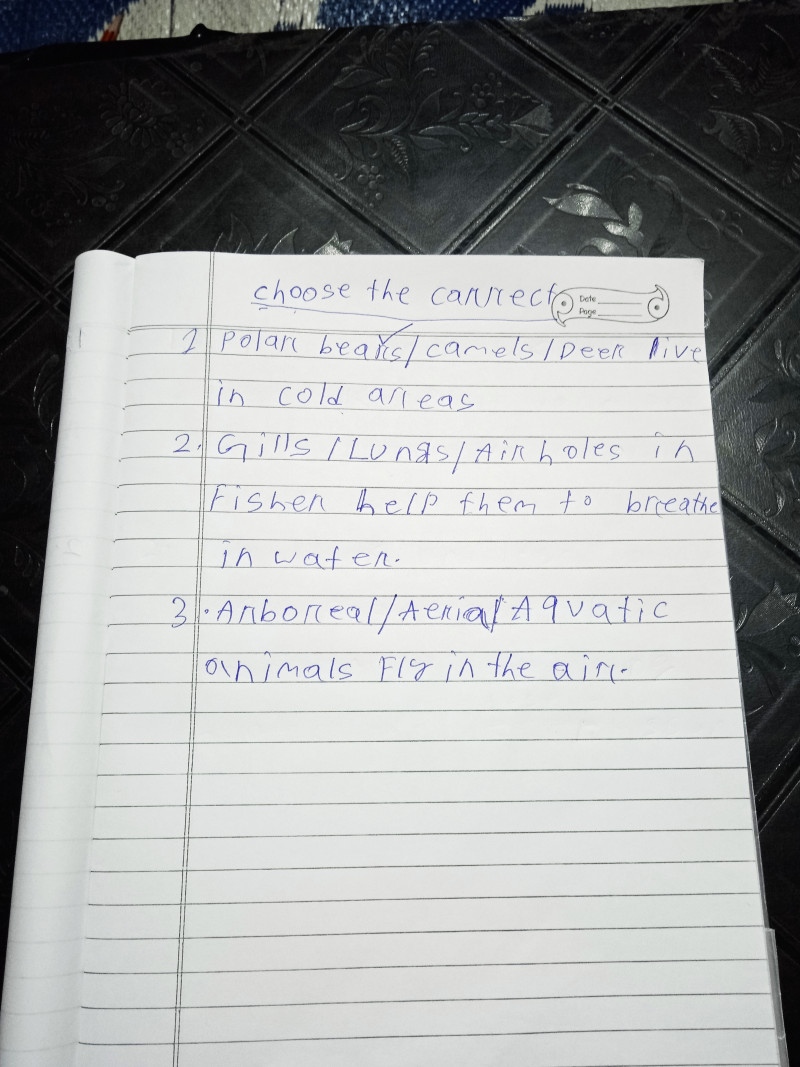 choose the correct
Date
Page
1 Polar bears/camels/Deer live
in cold areas
2. Gills/Lungs/Air holes in
Fisher help them to breathe
in water.
3. Arboreal/Aerial/Aquatic
animals Fly in the air.